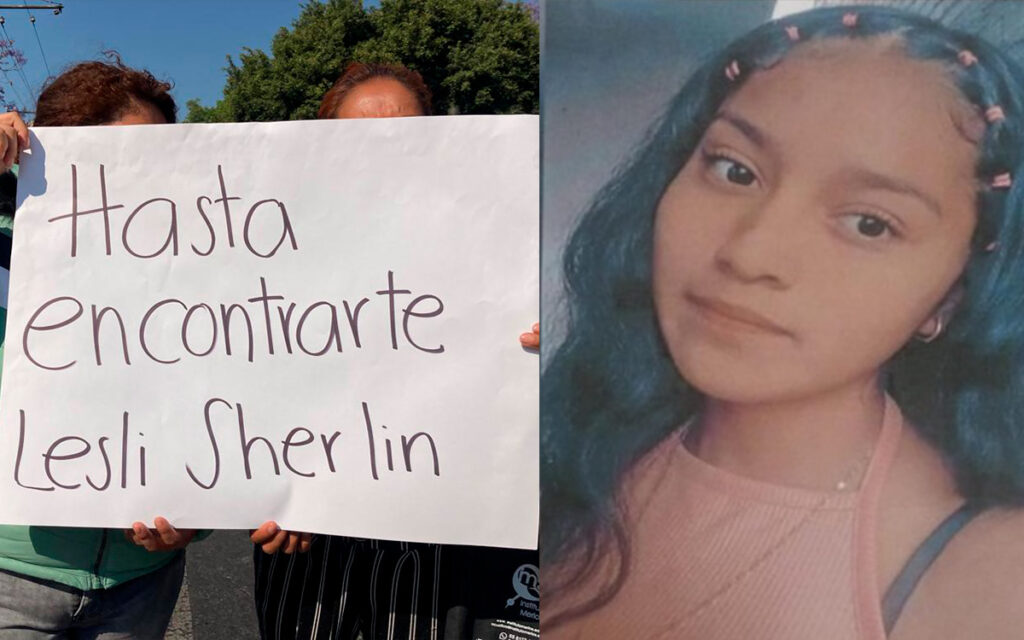 Hasta
encontrarte
Lesli Sherlin